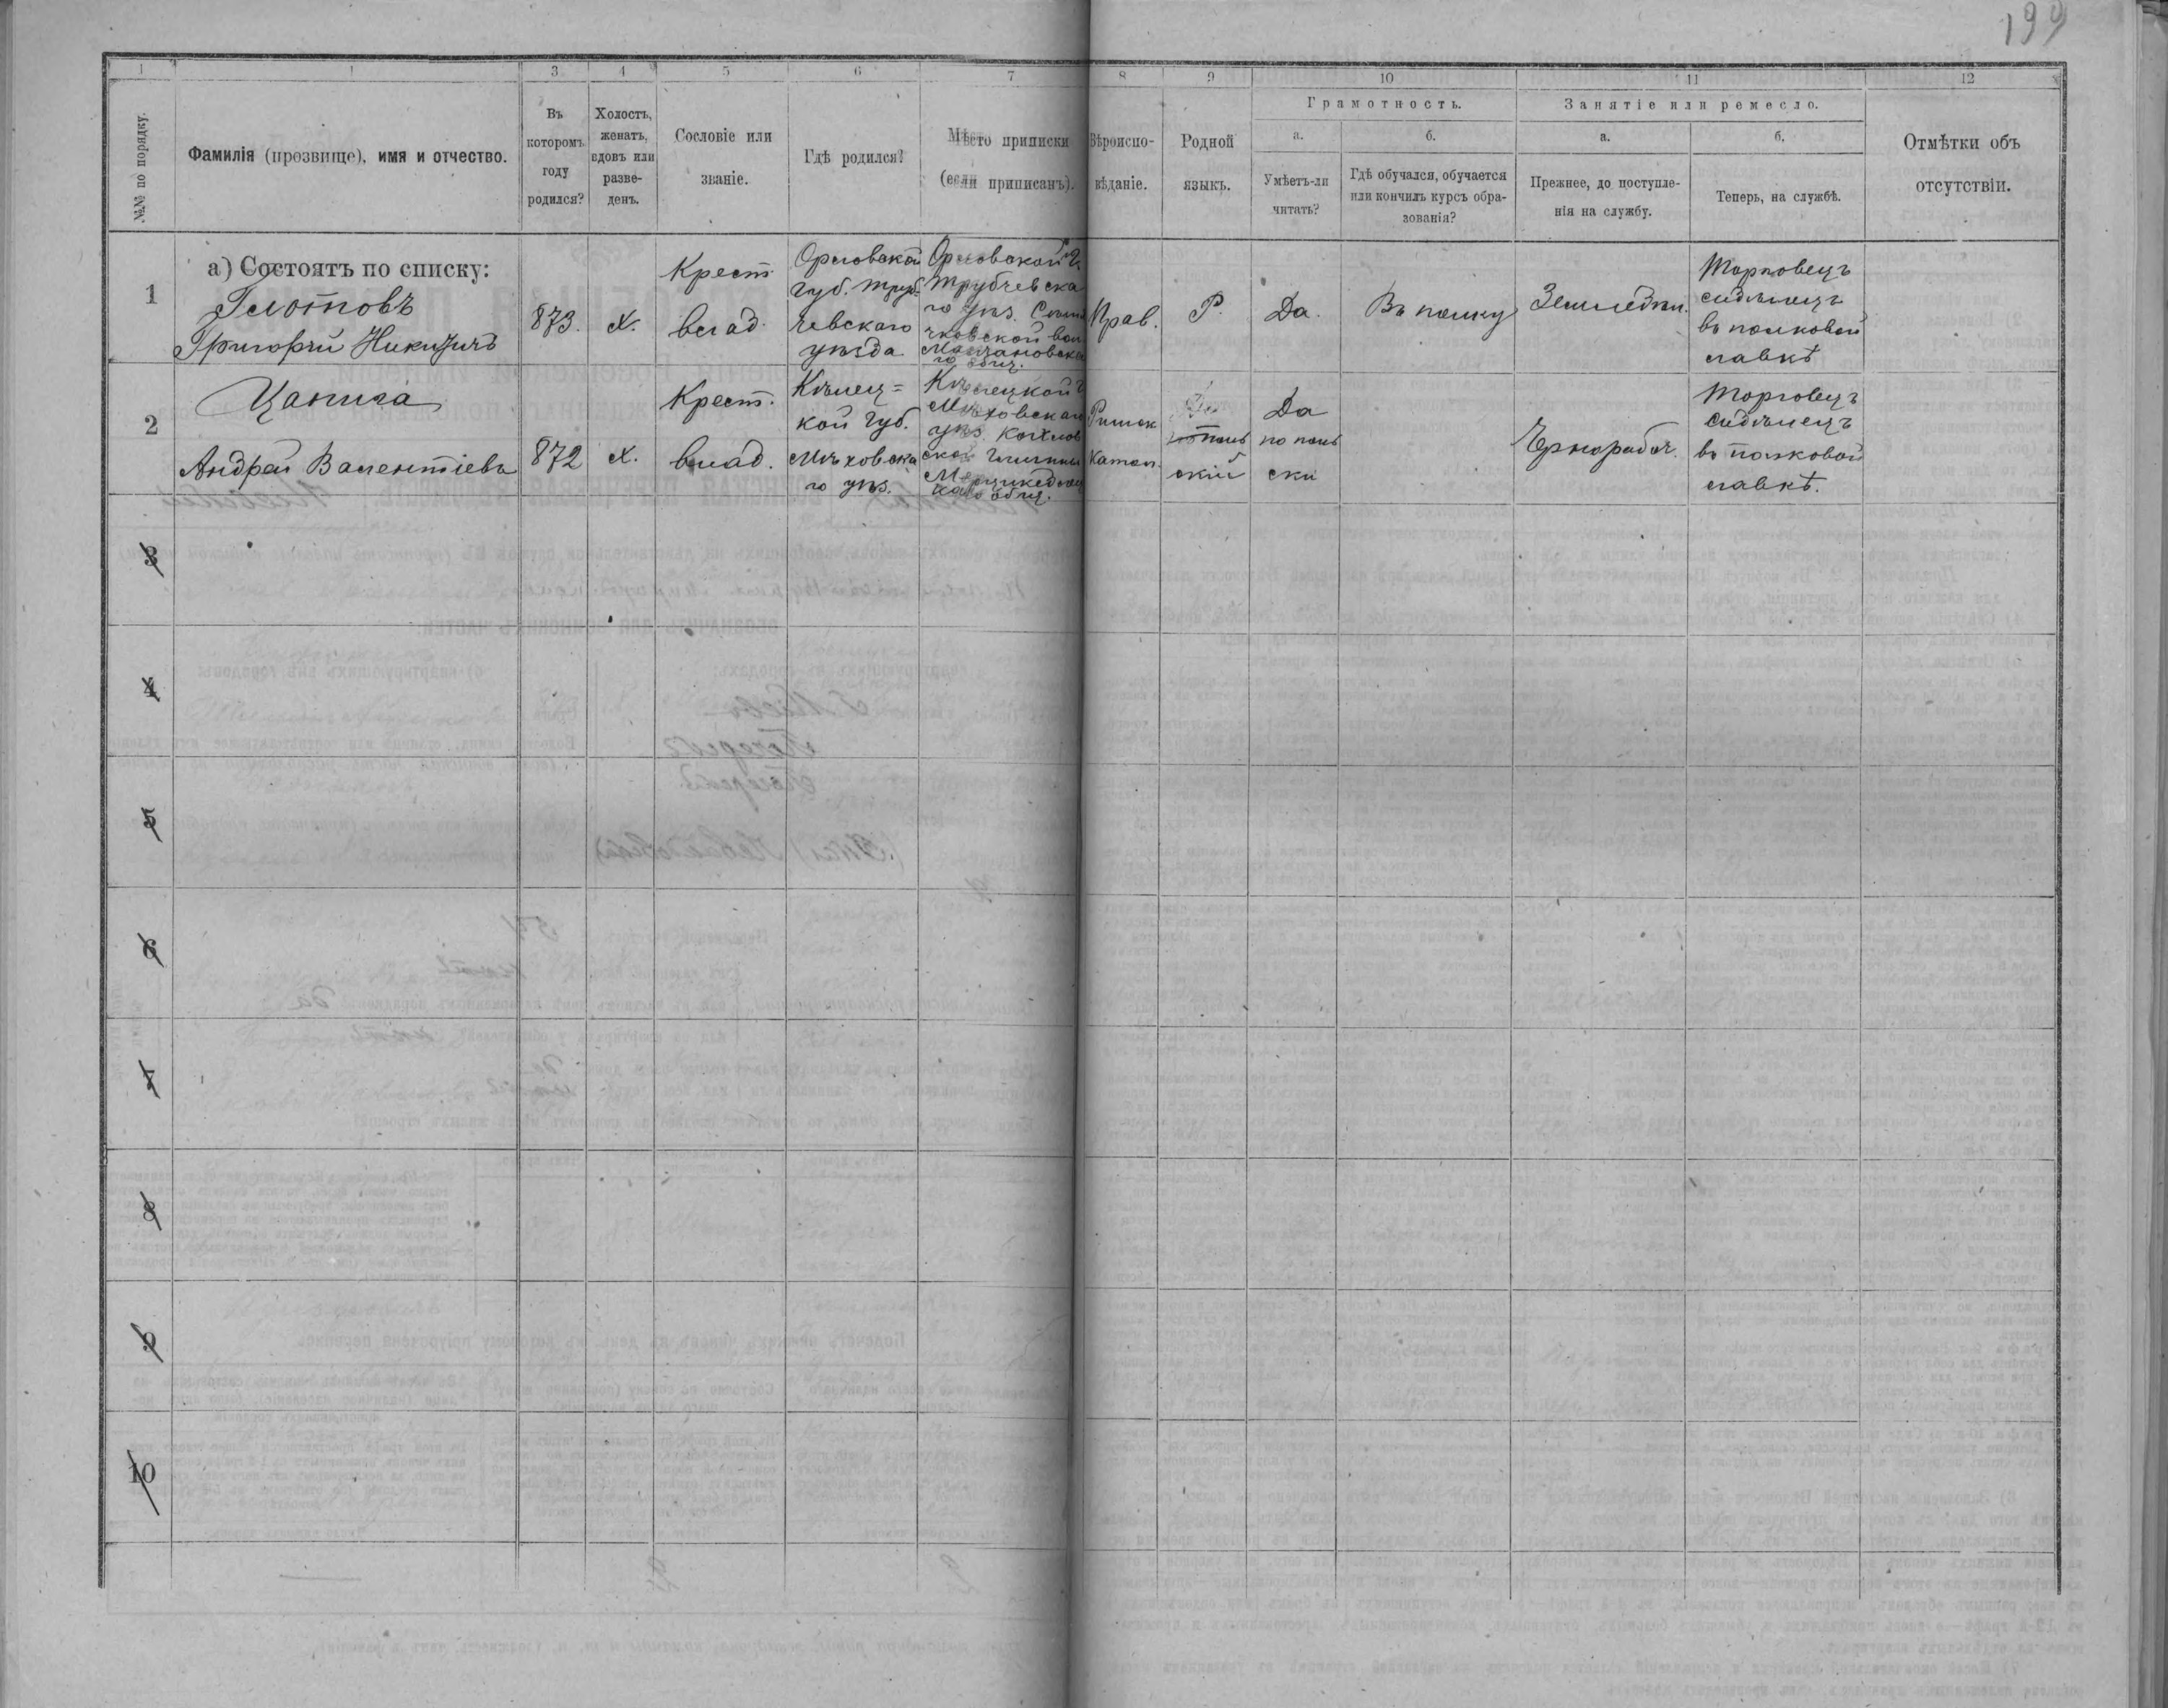 199
1
1
3
4
5
6
7
8
9
10
11
12
№№ по порядку.
Фамилія (прозвище), имя и отчество.
Въ
которомъ
году
родился?
Холостъ,
женатъ,
вдовъ или
разве-
денъ.
Сословіе или
званіе.
Гдѣ родился?
Мѣсто приписки
(если приписанъ).
Вѣроиспо-
вѣданіе.
Родной
языкъ.
Грамотность.
а.
Умѣетъ-ли
читать?
б.
Гдѣ обучался, обучается
или кончилъ курсъ обра-
зованія?
Занятіе или ремесло.
а.
Прежнее, до поступле-
нія на службу.
б.
Теперь, на службѣ.
Отмѣтки объ
отсутствіи.
а) Состоятъ по списку:
1
Глотовъ
Григорій Никитичъ
873.
х.
Крест.
влад.
Орловской
губ. Труб-
чевскаго
уѣзда
Орловской г.
Трубчевска
го уѣз.
вол
го общ.
Прав.
Р.
Да.
Въ полку
Земледѣл.
Торговецъ
сидѣлецъ
въ полковой
лавкѣ
2
Цапига
Андрей Валентіевъ
872
х.
Крест.
влад.
Кѣлец=
кой губ.
Мѣховска
го уѣз.
Кѣлецкой г
Мѣховскаго
уѣз.
общ.
Римск
Катол.
поль
скій
Да
по поль
ски
Чернорабоч.
Торговецъ
сидѣлецъ
въ полковой
лавкѣ.
3
4
5
6
7
8
9
10